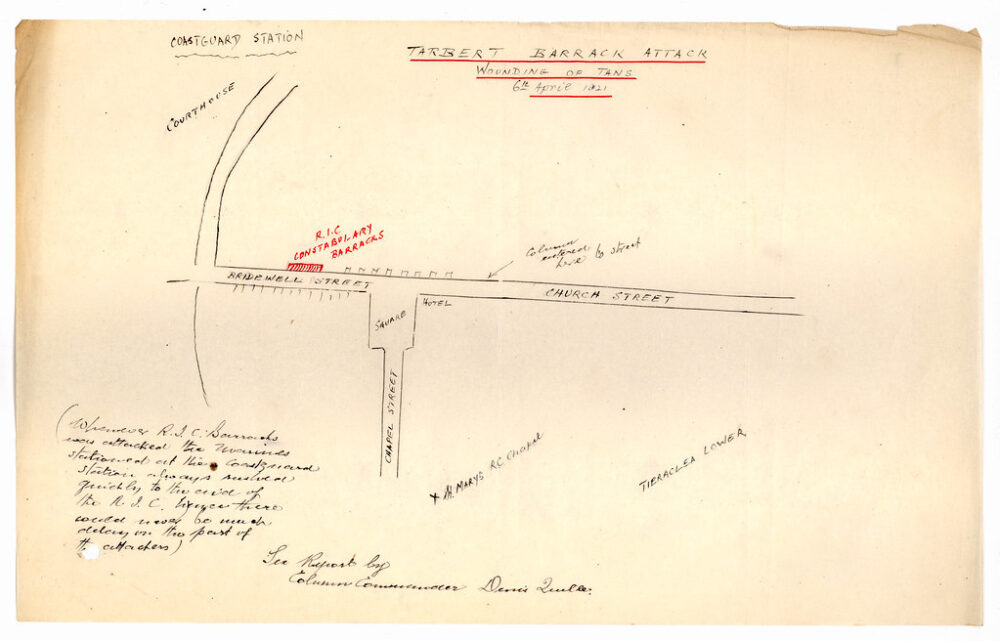 COASTGUARD STATION
TARBERT BARRACK ATTACK
WOUNDING OF TANS
6th April 1921
COURTHOUSE
R.I.C
CONSTABULARY
BARRACKS
Column
entered to street
here
BRIDEWELL STREET
CHURCH STREET
HOTEL
SQUARE
CHAPEL STREET
St MARYS RC Chapel
TIERACLEA LOWER
(Whenever R.I.C. Barracks
was attacked the
stationed at the Coastguard
station always rushed
quickly to the aid of
the R.I.C. hence there
could never be much
delay on the part of
the attackers)
See Report by
Column Commander Denis Quille.